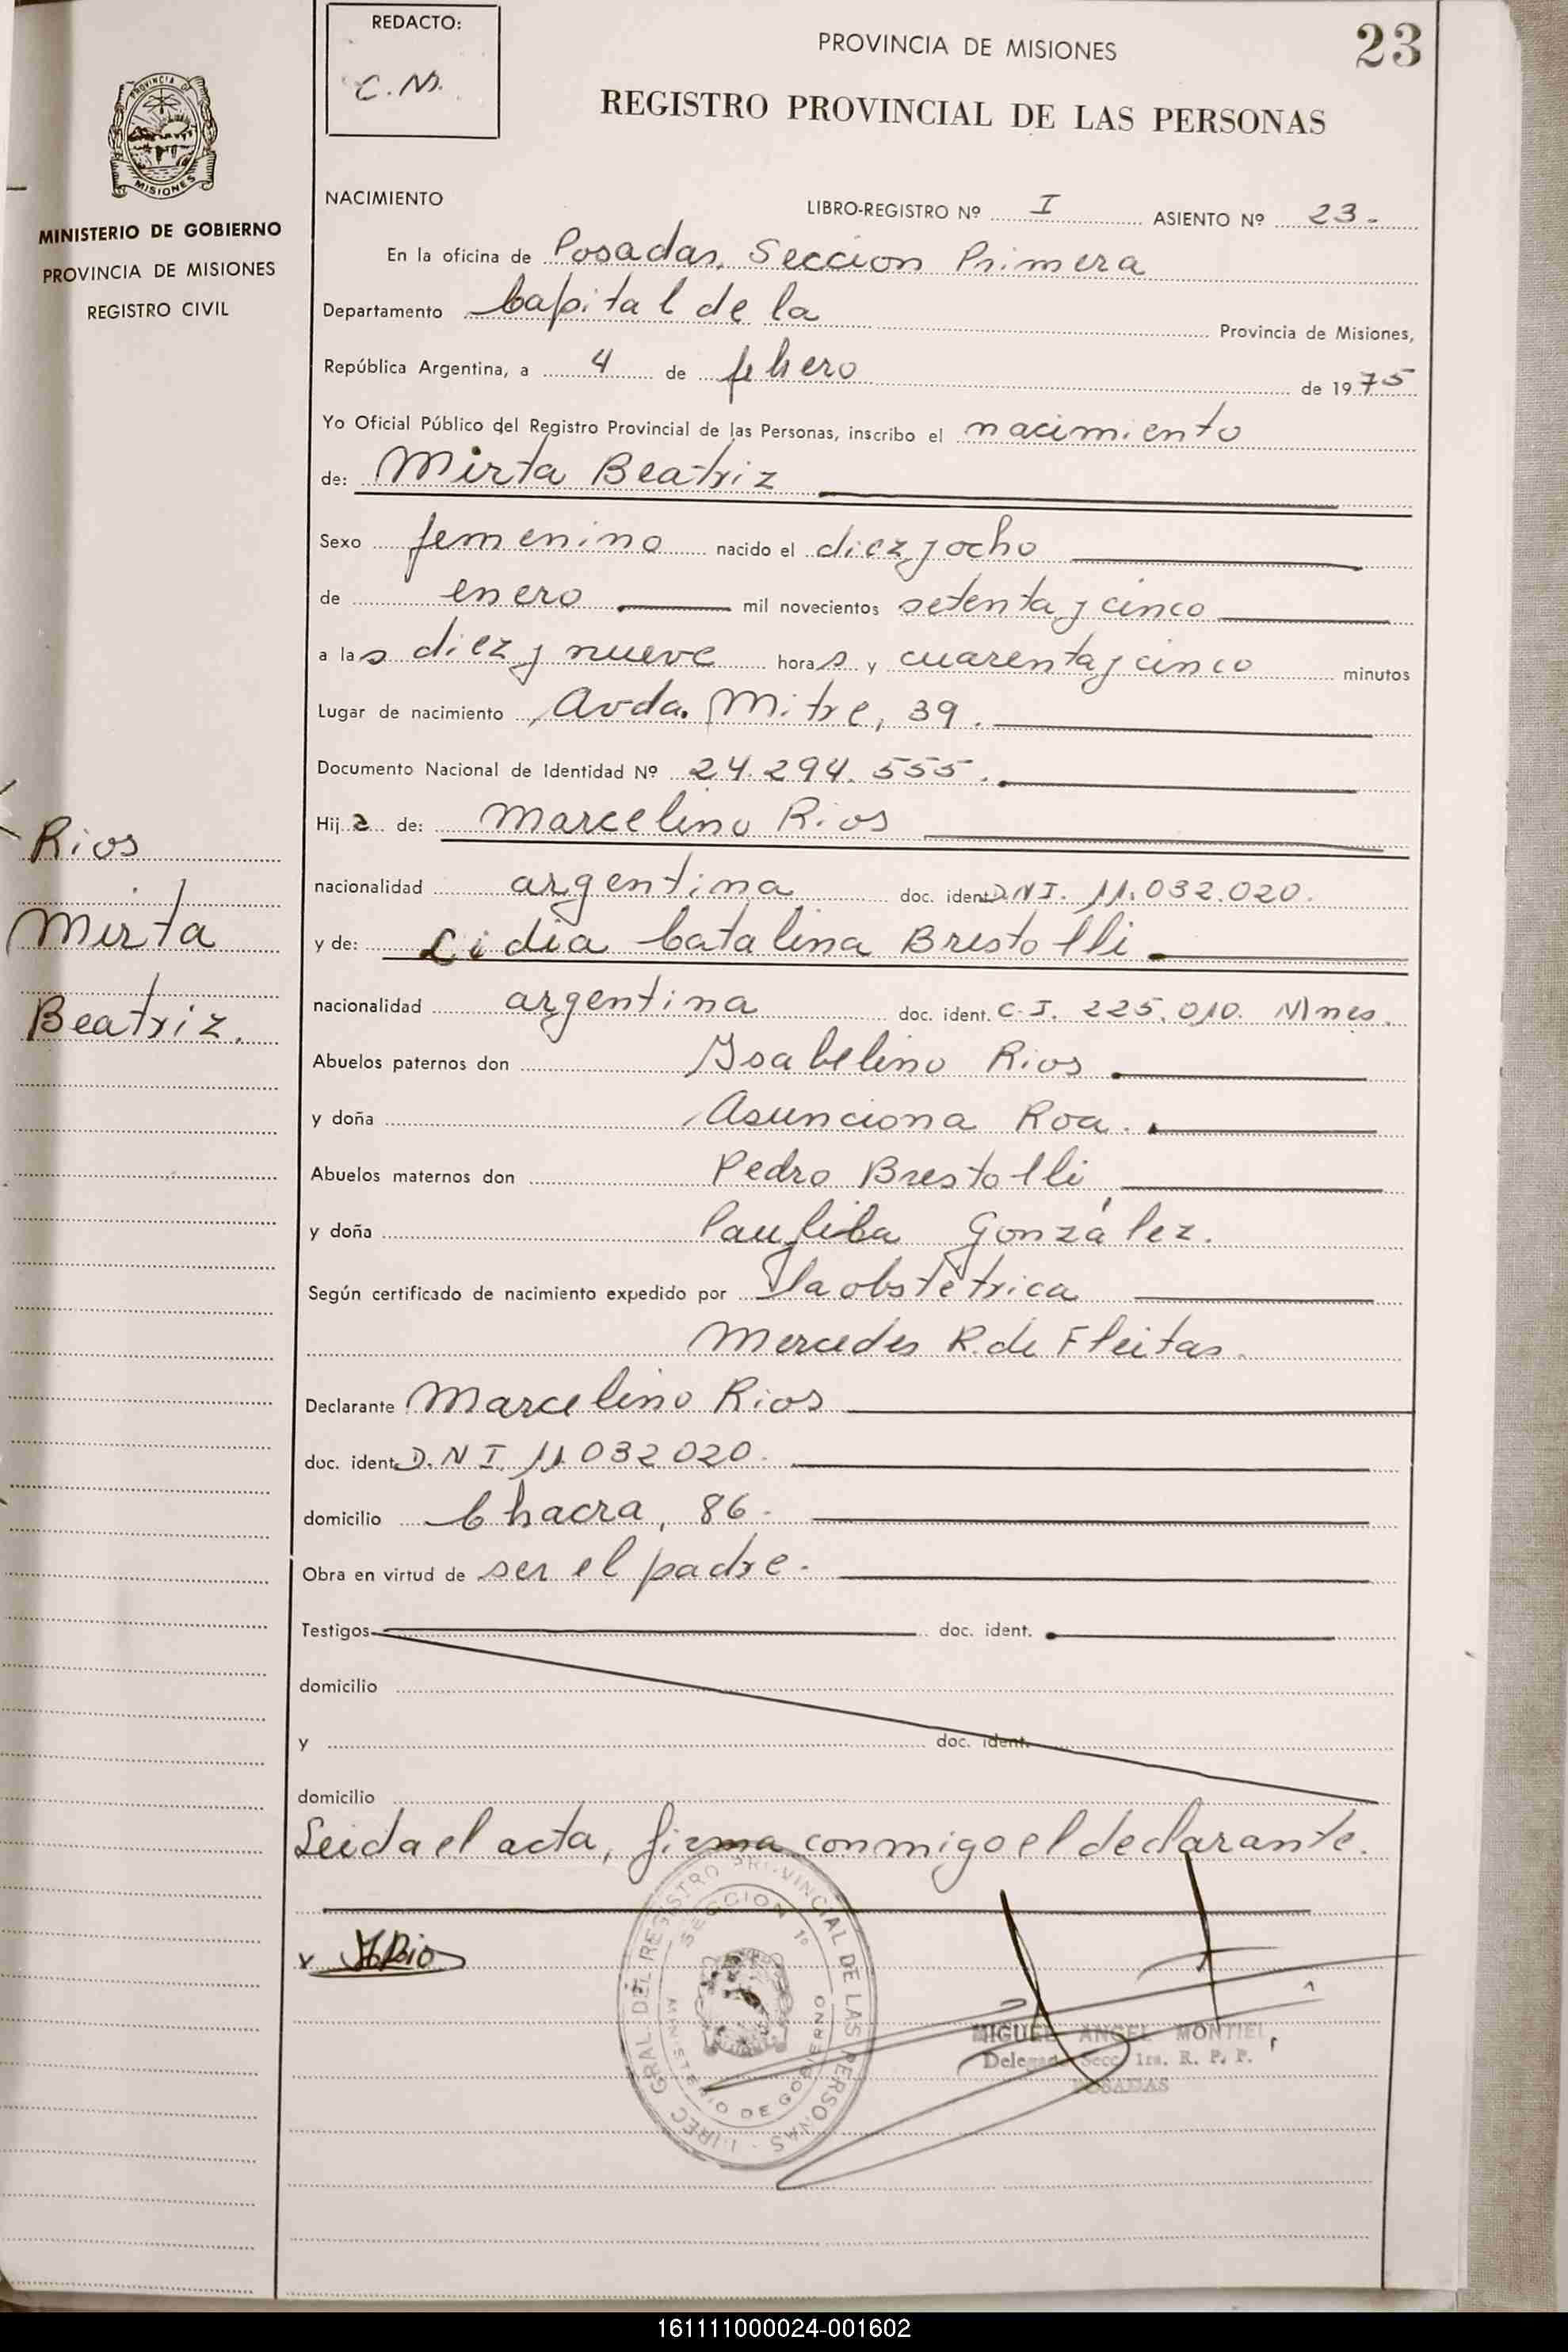 REDACTO:
C.M.
PROVINCIA DE MISIONES
23
REGISTRO PROVINCIAL DE LAS PERSONAS
PROVINCIA DE
MISIONES
MINISTERIO DE GOBIERNO
PROVINCIA DE MISIONES
REGISTRO CIVIL
NACIMIENTO
LIBRO-REGISTRO Nº I ASIENTO Nº 23.
En la oficina de Posadas, Seccion Primera
Departamento Capital de la Provincia de Misiones,
República Argentina, a 4 de febrero de 1975
Yo Oficial Público del Registro Provincial de las Personas, inscribo el nacimiento
de: Mirta Beatriz
Sexo femenino nacido el diez y ocho
de enero mil novecientos setenta y cinco
a las diez y nueve horas y cuarenta y cinco minutos
Lugar de nacimiento Avda. Mitre, 39.
Documento Nacional de Identidad Nº 24.294.555.
Hija de: Marcelino Rios
nacionalidad argentina doc. ident. D.N.I. 11.032.020.
y de: Lidia Catalina Brestolli
nacionalidad argentina doc. ident. C.I. 225.010. Mnes.
Abuelos paternos don Ysabelino Rios
y doña Asunciona Roa.
Abuelos maternos don Pedro Brestolli
y doña González.
Según certificado de nacimiento expedido por la obstetrica
Mercedes R. de Fleitas.
Declarante Marcelino Rios
doc. ident. D.N.I. 11.032020.
domicilio Chacra, 86.
Obra en virtud de ser el padre.
Testigos doc. ident.
domicilio
y doc. ident.
domicilio
Leida el acta, firma conmigo el declarante.
Rios
Mirta
Beatriz.
DIREC GRAL DEL REGISTRO PROVINCIAL DE LAS PERSONAS
SECCION 1º
MINISTERIO DE GOBIERNO
MIGUEL ANGEL MONTIEL
Delegado Secc. 1ra. R. P. P.
POSADAS
161111000024-001602